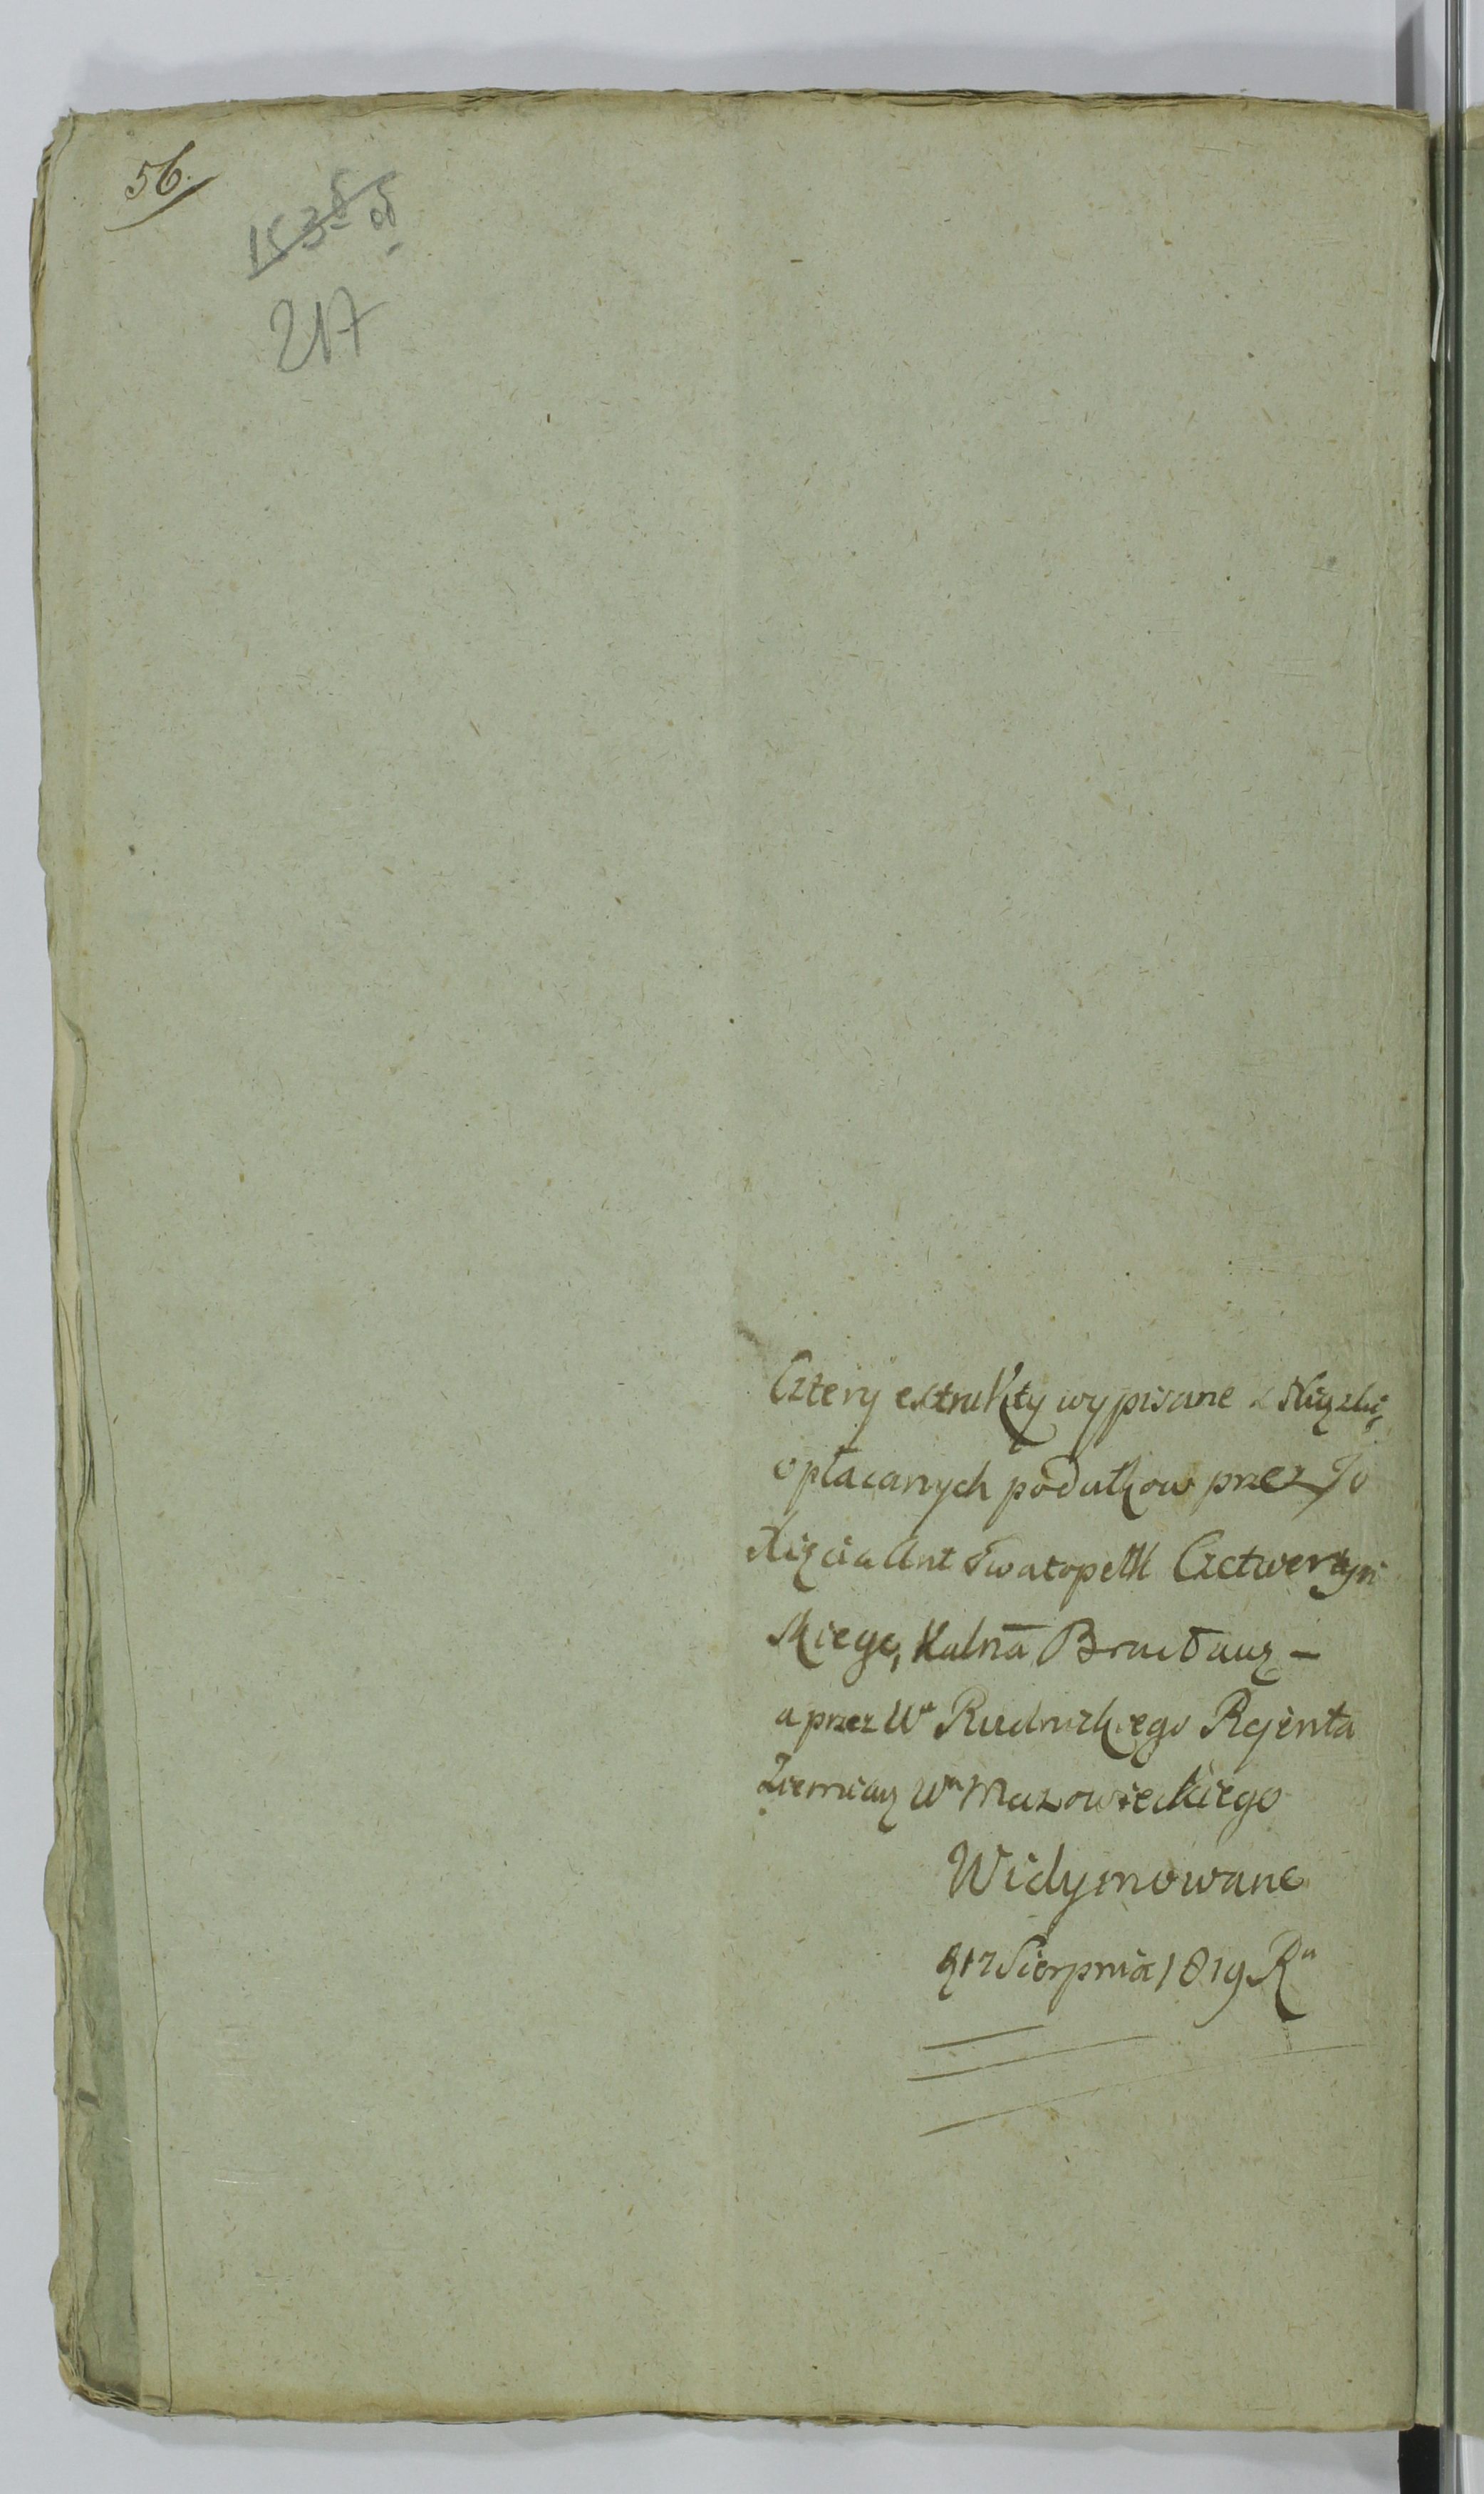 56.
217
Cztery extrakty wypisane z Xiążki
opłacanych podatkow przez Jo
Xięcia Ant Swatopełk Czetwertyń
skiego, Kalnā Bracławz —
a przez Wo Rudnickiego Rejenta
Ziemians Wa Mazowieckiego
Widymowane
12 Sierpnia 1819 Ru